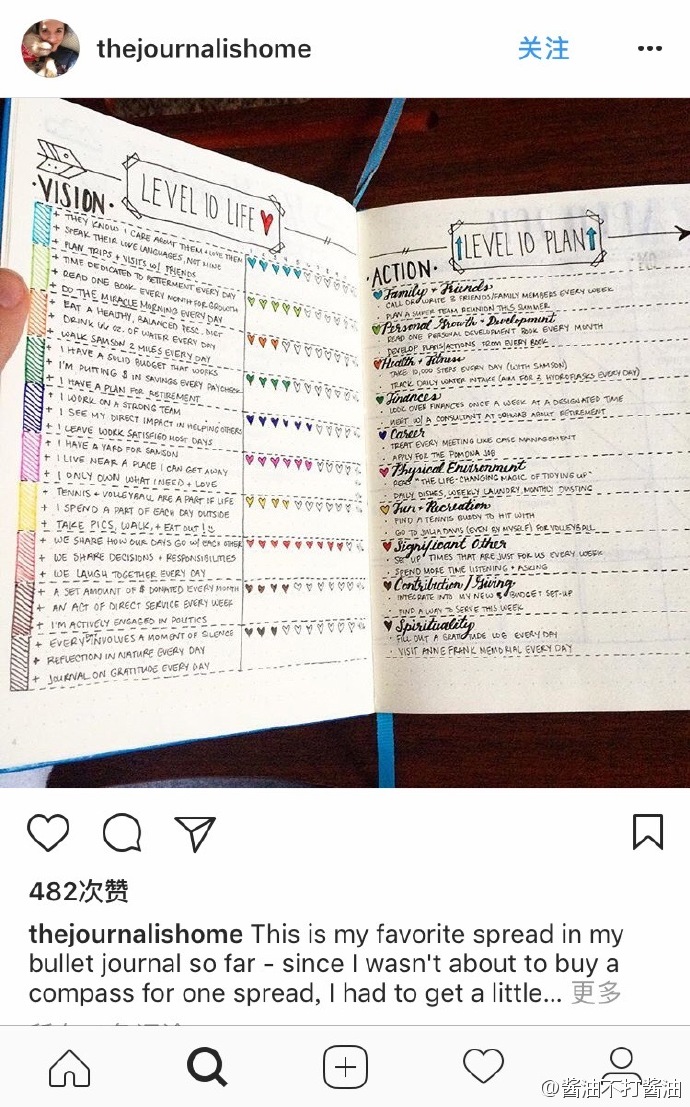 thejournalishome
关注
LEVEL 10 LIFE
·VISION·
+ THEY KNOW I CARE ABOUT THEM + LOVE THEM
+ SPEAK THEIR LOVE LANGUAGES, NOT MINE
+ PLAN TRIPS + VISITS W/ FRIENDS
+ TIME DEDICATED TO BETTERMENT EVERY DAY
+ READ ONE BOOK EVERY MONTH FOR GROWTH
+ DO THE MIRACLE MORNING EVERY DAY
+ EAT A HEALTHY, BALANCED DIET
+ DRINK OZ. OF WATER EVERY DAY
+ WALK SAMSON 2 MILES EVERY DAY
+ I HAVE A SOLID BUDGET THAT WORKS
+ I'M PUTTING $ IN SAVINGS EVERY PAYCHECK
+ I HAVE A PLAN FOR RETIREMENT
+ I WORK ON A STRONG TEAM
+ I SEE MY DIRECT IMPACT IN HELPING OTHERS
+ I LEAVE WORK SATISFIED MOST DAYS
+ I HAVE A YARD FOR SAMSON
+ I LIVE NEAR A PLACE I CAN GET AWAY
+ I ONLY OWN WHAT I NEED + LOVE
+ TENNIS + VOLLEYBALL ARE A PART OF LIFE
+ I SPEND A PART OF EACH DAY OUTSIDE
+ TAKE PICS, WALK, + EAT OUT!
+ WE SHARE HOW OUR DAYS GO W/ EACH OTHER
+ WE SHARE DECISIONS + RESPONSIBILITIES
+ WE LAUGH TOGETHER EVERY DAY
+ A SET AMOUNT OF $ DONATED EVERY MONTH
+ AN ACT OF DIRECT SERVICE EVERY WEEK
+ I'M ACTIVELY ENGAGED IN POLITICS
+ EVERY DAY INVOLVES A MOMENT OF SILENCE
+ REFLECTION IN NATURE EVERY DAY
+ JOURNAL ON GRATITUDE EVERY DAY
LEVEL 10 PLAN
·ACTION·
Family + Friends
· CALL OR WRITE 2 FRIENDS/FAMILY MEMBERS EVERY WEEK
· PLAN A SUPER TEAM REUNION THIS SUMMER
Personal Growth + Development
· READ ONE PERSONAL DEVELOPMENT BOOK EVERY MONTH
· DEVELOP PLANS/ACTIONS FROM EVERY BOOK
Health + Fitness
· TAKE 10,000 STEPS EVERY DAY (WITH SAMSON)
· TRACK DAILY WATER INTAKE (AIM FOR 2 HYDROFLASKS EVERY DAY)
Finances
· LOOK OVER FINANCES ONCE A WEEK AT A DESIGNATED TIME
· MEET W/ A CONSULTANT AT SCHWAB ABOUT RETIREMENT
Career
· TREAT EVERY MEETING LIKE CASE MANAGEMENT
· APPLY FOR THE POMONA JOB
Physical Environment
· READ "THE LIFE-CHANGING MAGIC OF TIDYING UP"
· DAILY DISHES, WEEKLY LAUNDRY, MONTHLY DUSTING
Fun + Recreation
· FIND A TENNIS BUDDY TO HIT WITH
· GO TO JULIA DAVIS (EVEN BY MYSELF) FOR VOLLEYBALL
Significant Other
· SET UP TIMES THAT ARE JUST FOR US EVERY WEEK
· SPEND MORE TIME LISTENING + ASKING
Contribution/Giving
· INTEGRATE INTO MY NEW $ BUDGET SET-UP
· FIND A WAY TO SERVE THIS WEEK
Spirituality
· FILL OUT A GRATITUDE LOG EVERY DAY
· VISIT ANNE FRANK MEMORIAL EVERY DAY
482次赞
thejournalishome This is my favorite spread in my
bullet journal so far - since I wasn't about to buy a
compass for one spread, I had to get a little... 更多
@酱油不打酱油